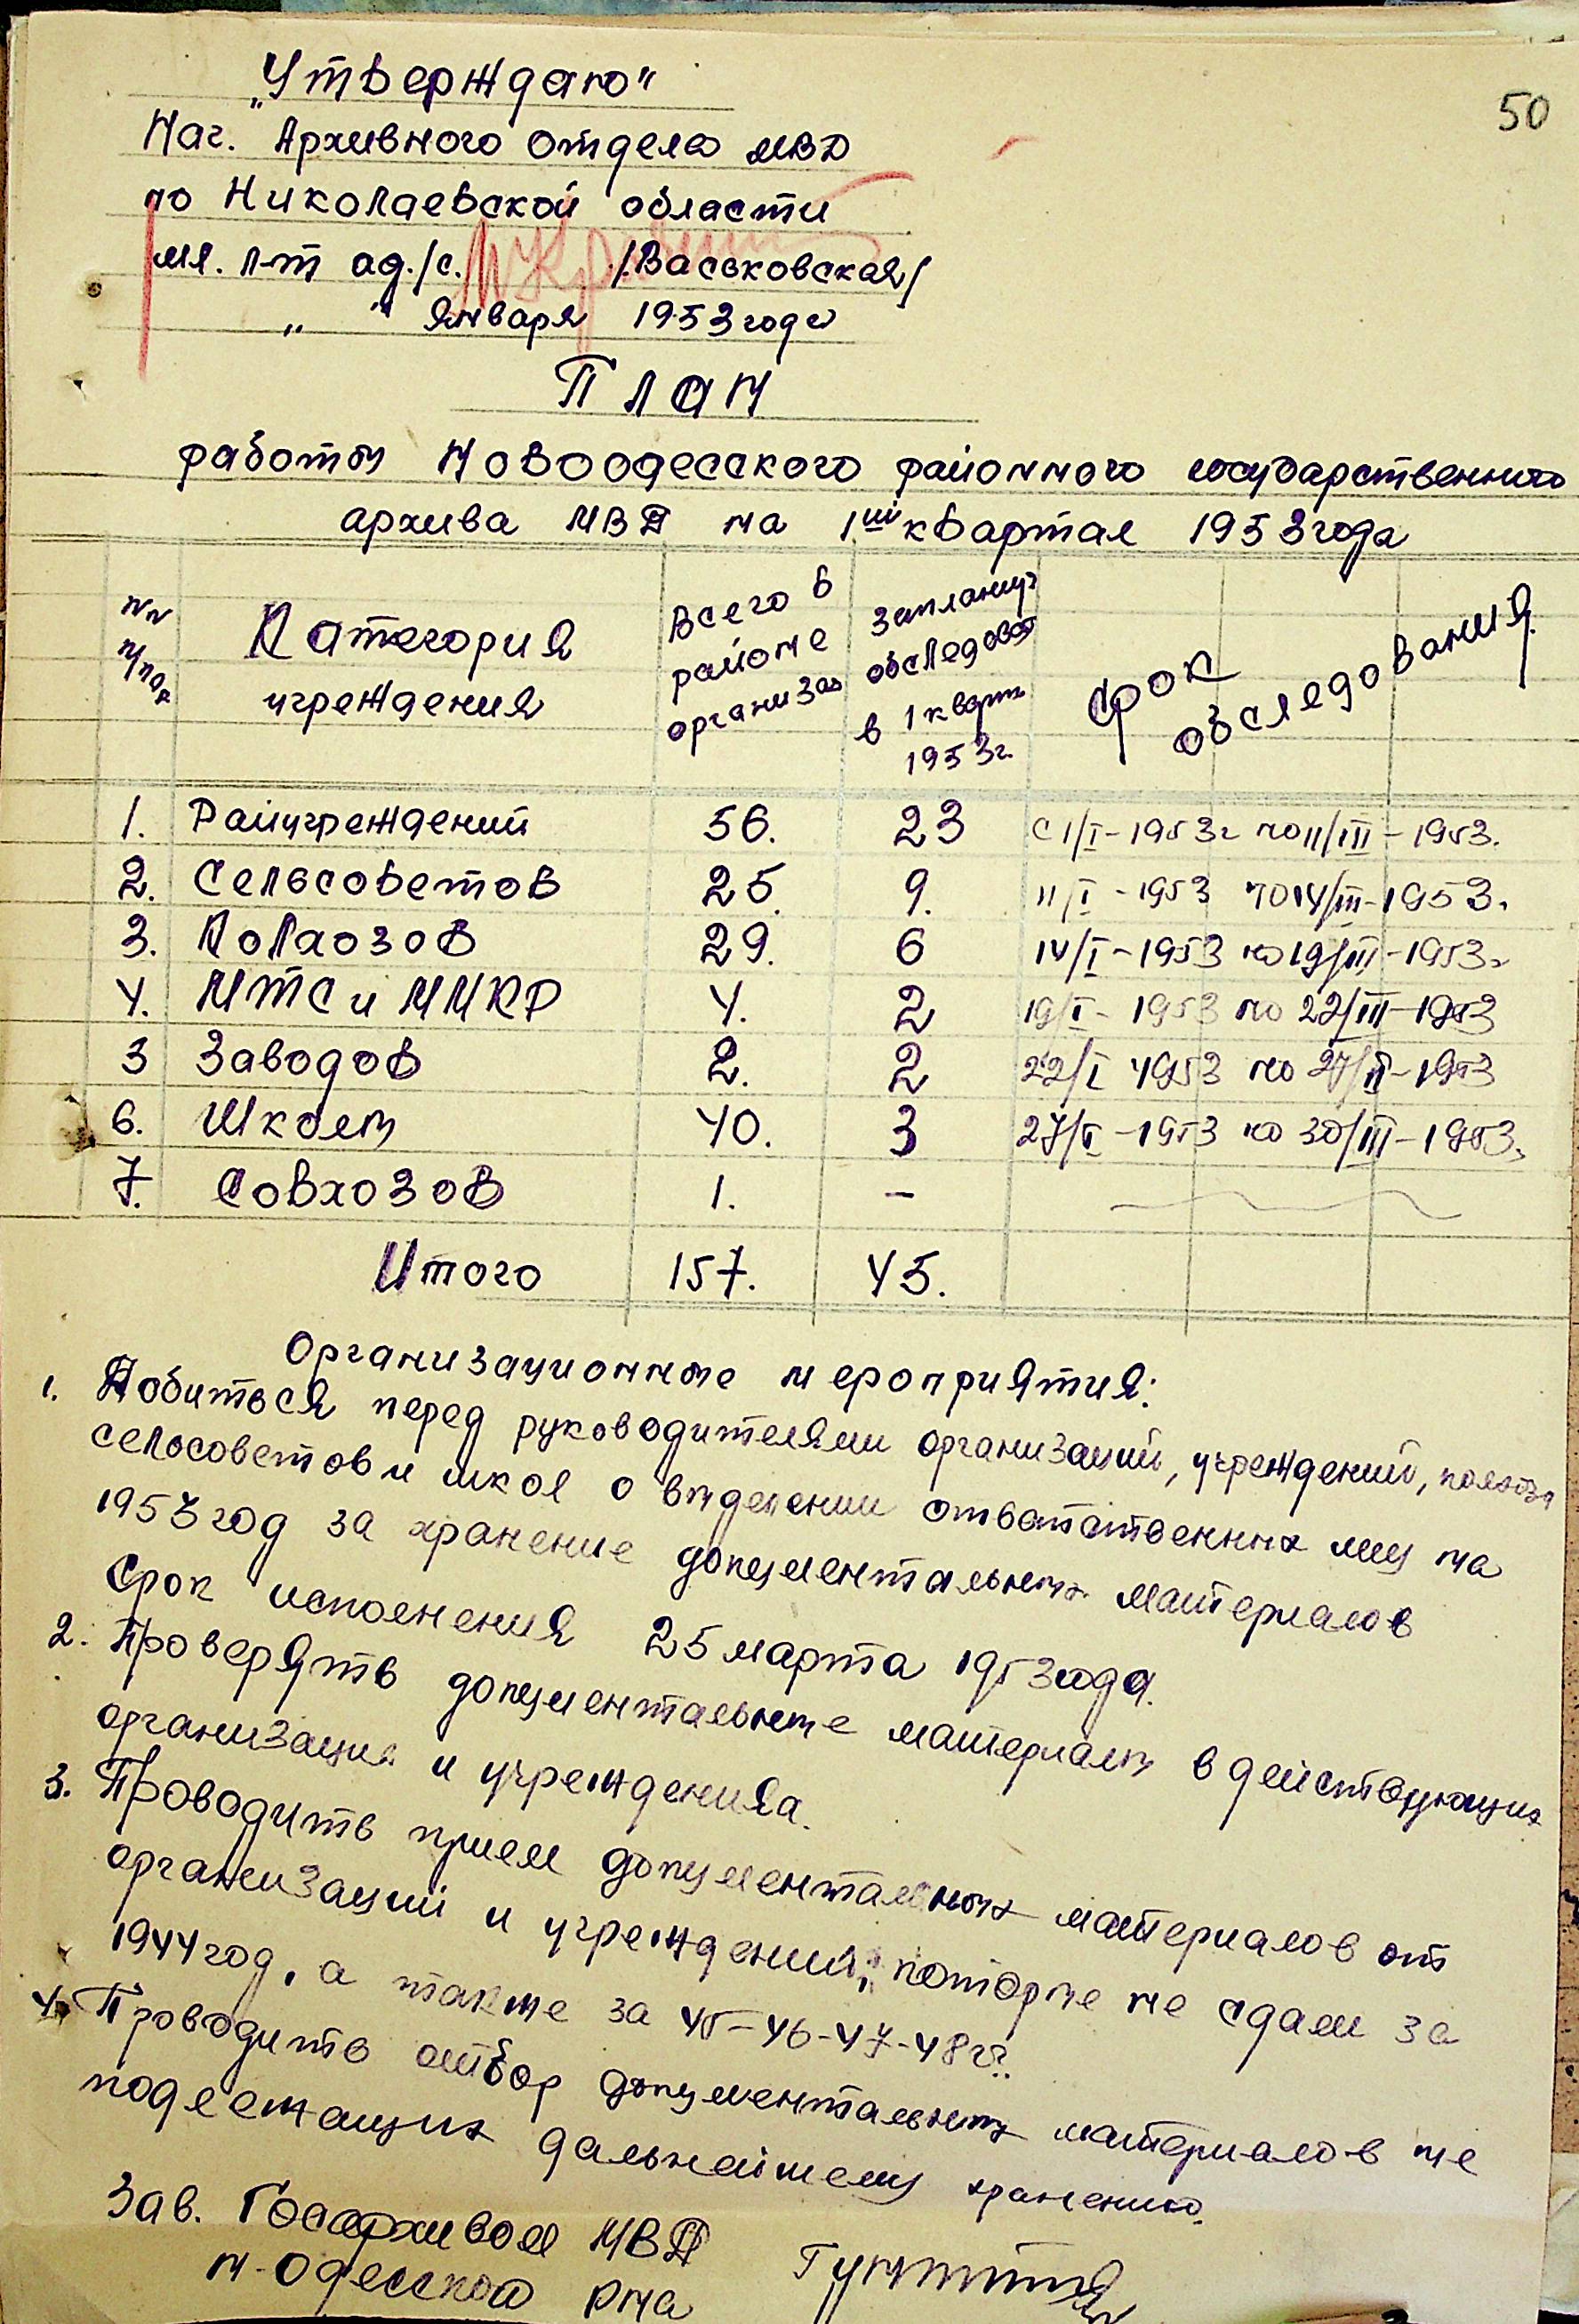 50
„Утверждаю"
Нач. Архивного отдела МВД
по Николаевской области
мл. л-т ад./с. /Васьковская/
„ " января 1953 года
План
работы Новоодесского районного государственного
архива МВД на 1ый квартал 1953 года
NN п/пор Категория учреждения Всего в районе организац Запланир обследоват в 1 кварт 1953г. Срок обследования
1. Райучреждений 56. 23 с 1/I-1953г по 11/III-1953.
2. Сельсоветов 25. 9. 11/I-1953 по 14/III-1953.
3. Колхозов 29. 6 14/I-1953 по 19/III-1953г
4. МТС и ММКР 4. 2 19/I-1953 по 22/III-1953
5 Заводов 2. 2 22/I 1953 по 27/II-1953
6. Школы 40. 3 27/I-1953 по 30/III-1953.
7. Совхозов 1. -
Итого 157. 45.
Организационные мероприятия:
1. Добиться перед руководителями организаций, учреждений, колхоза
сельсоветов и школ о выделении ответственных лиц на
1953 год за хранение документальных материалов
Срок исполнения 25 марта 1953 года.
2. Проверять документальные материалы в действующих
организация и учрежденияа.
3. Проводить прием документальных материалов от
организаций и учреждений, которые не сдали за
1944 год, а также за 45-46-47-48 гг.
4. Проводить отбор документальных материалов не
подлежащих дальнейшему хранению.
Зав. Госархивом МВД
Н-Одесского р-на